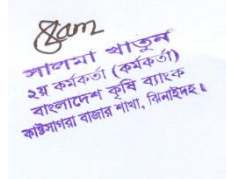 সালমা খাতুন
২য় কর্মকর্তা (কর্মকর্তা)
বাংলাদেশ কৃষি ব্যাংক
কাষ্টসাগরা বাজার শাখা, ঝিনাইদহ।